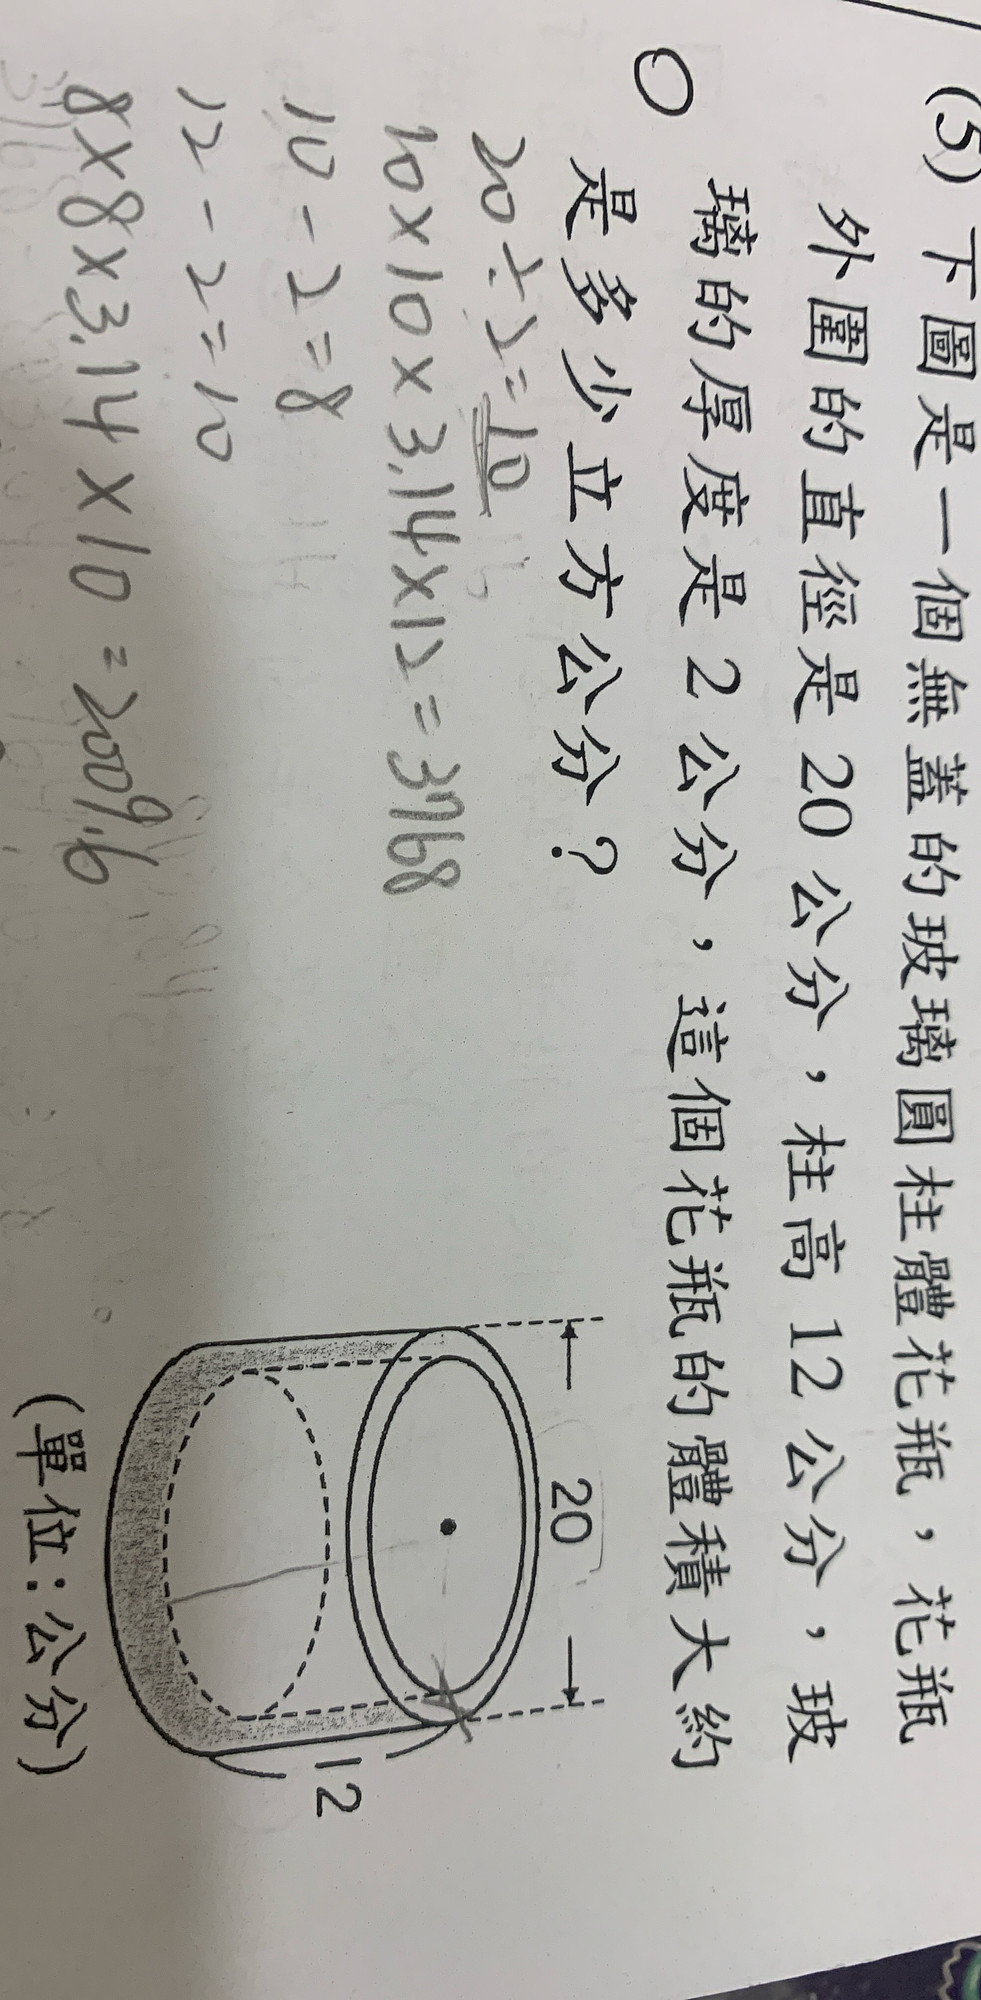 (5) 下圖是一個無蓋的玻璃圓柱體花瓶,花瓶
外圍的直徑是 20 公分,柱高 12 公分,玻
璃的厚度是 2 公分,這個花瓶的體積大約
是多少立方公分?
20÷2=10
10×10×3.14×12=3768
10-2=8
12-2=10
8×8×3.14×10=2009.6
20
12
(單位:公分)